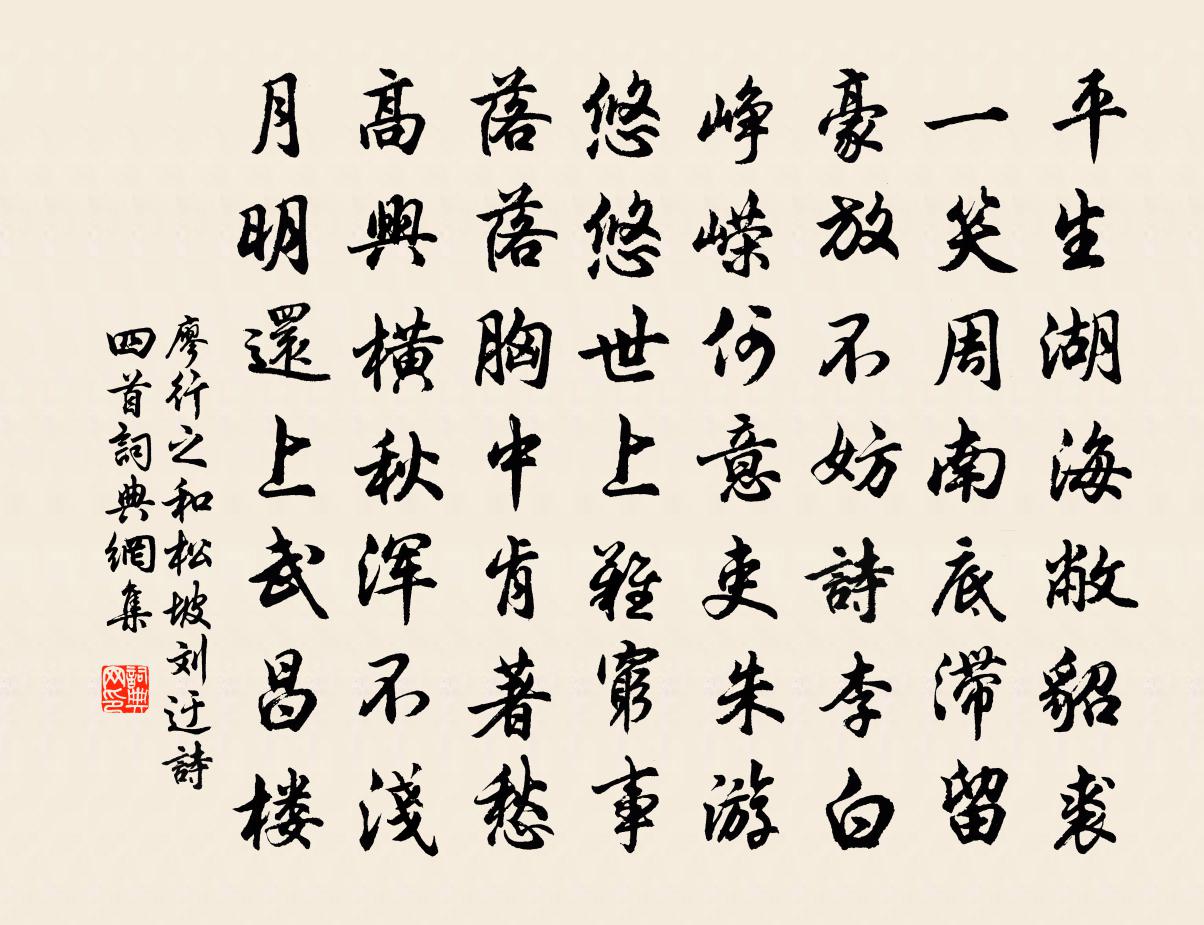 平生湖海敝貂裘
一笑周南底滞留
豪放不妨詩李白
峥嵘何意吏朱游
悠悠世上難窮事
落落胸中肯著愁
高興横秋浑不淺
月明還上武昌楼
廖行之和松坡刘迂詩
四首詞典網集
詞典网印